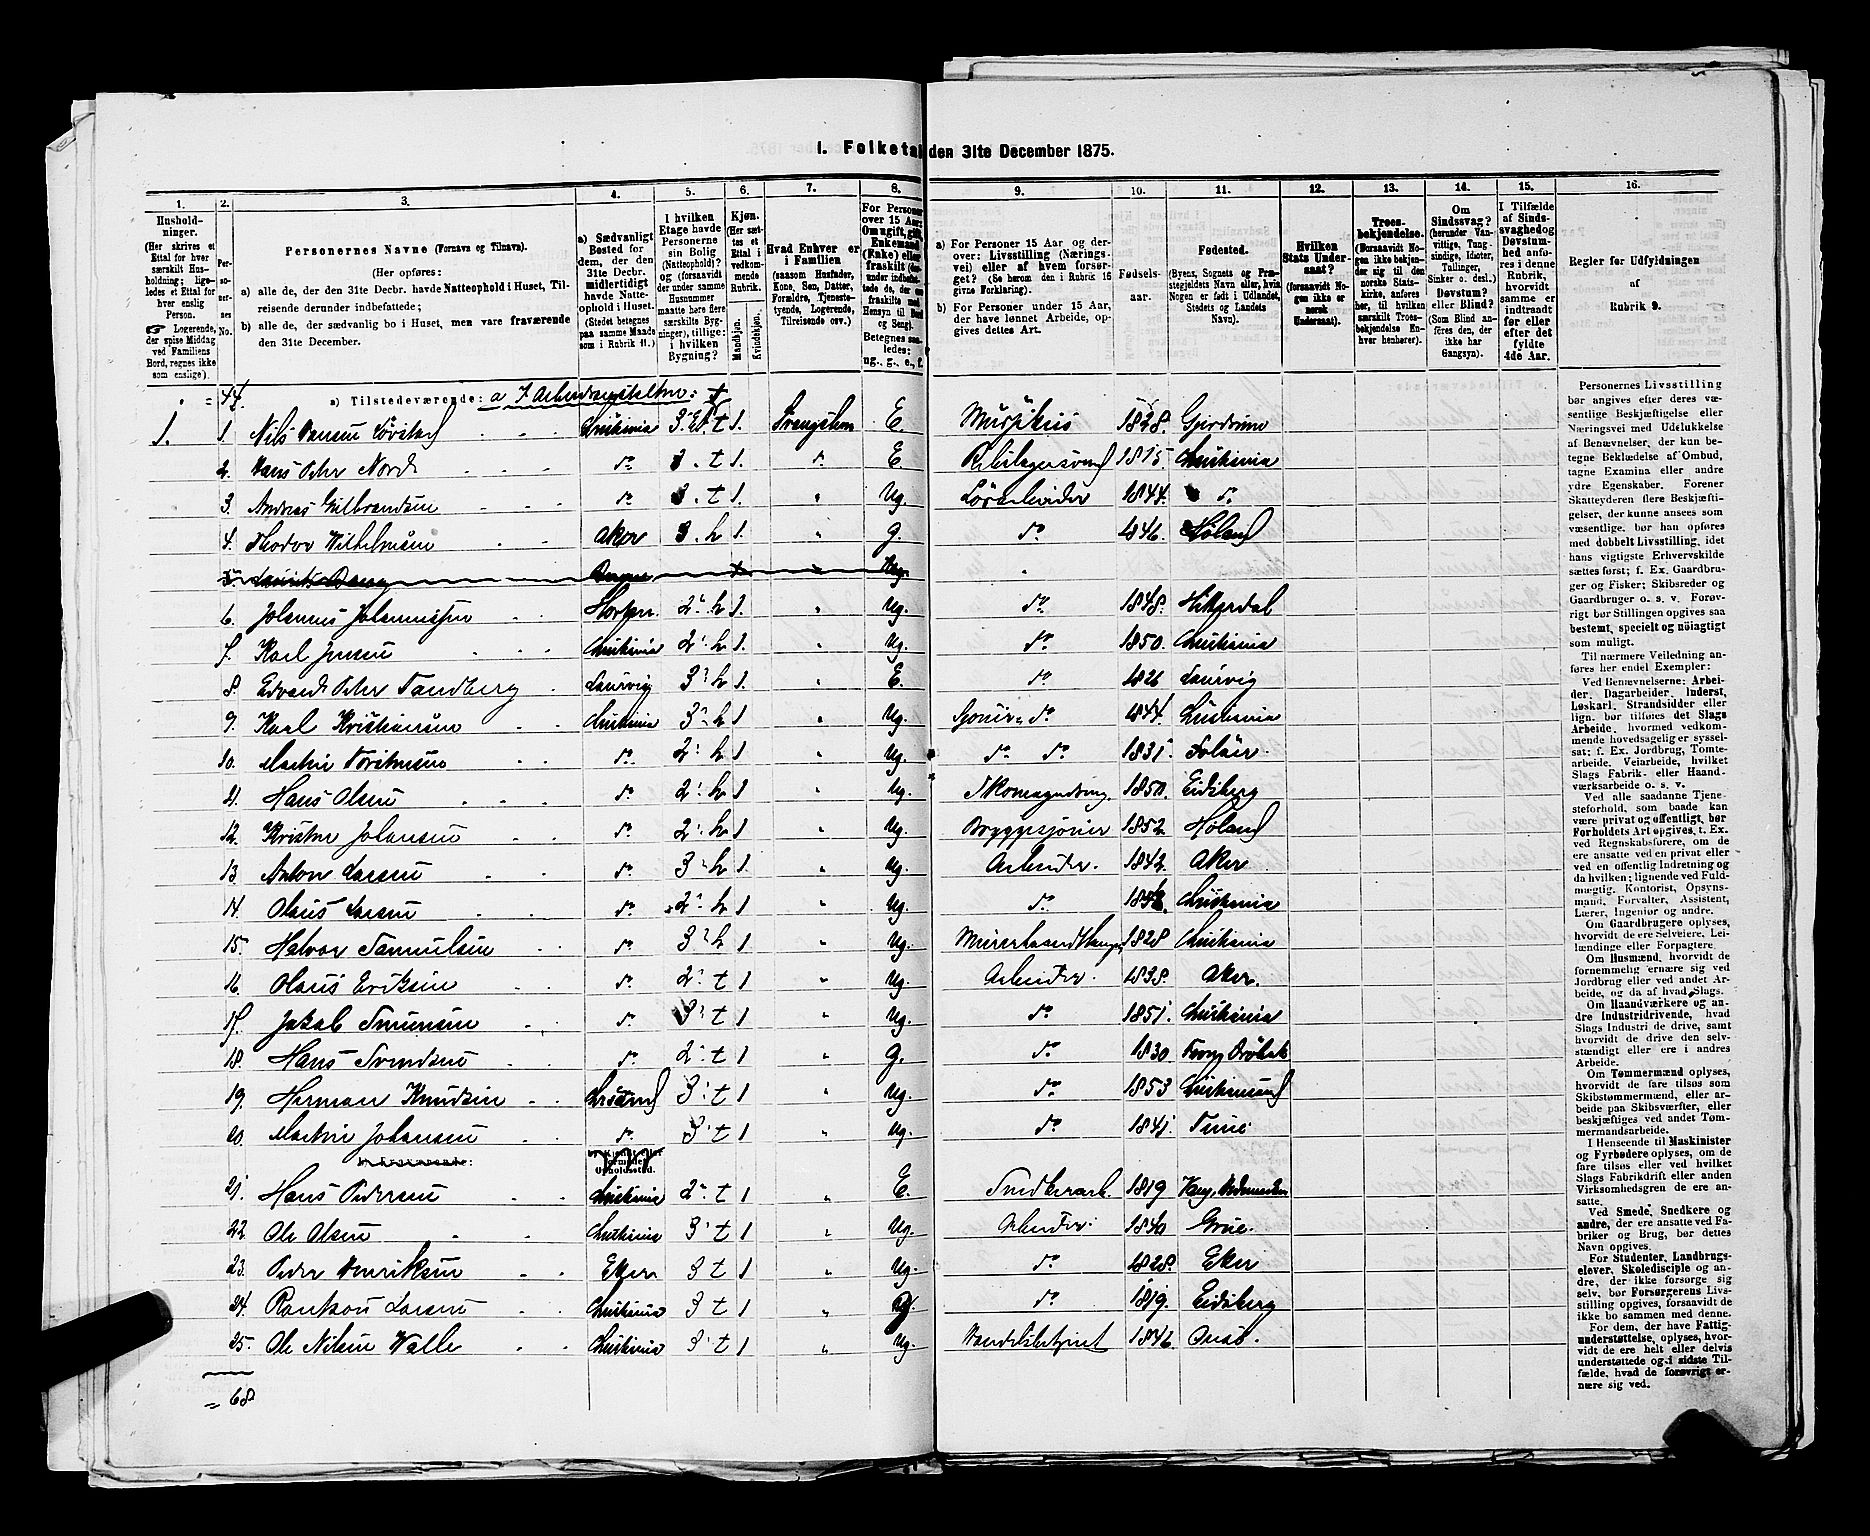 1. Folketal den 31te December 1875.
1. 2. 3. 4. 5. 6. 7. 8. 9. 10. 11. 12. 13. 14. 15. 16.
Husholdninger.
(Her skrives et Ettal for hver særskilt Husholdning; ligeledes et Ettal for hver enslig Person.
☞ Logerende, der spise Middag ved Familiens Bord, regnes ikke som enslige).
Personernes No.
Personernes Navne (Fornavn og Tilnavn).
(Her opføres:
a) alle de, der den 31te Decbr. havde Natteophold i Huset, Tilreisende derunder indbefattede;
b) alle de, der sædvanlig bo i Huset, men vare fraværende den 31te December.
a) Sædvanligt Bosted for dem, der den 31te Decbr. midlertidigt havde Natteophold i Huset. (Stedet betegnes paa samme Maade som i Rubrik 11.)
I hvilken Etage havde Personerne sin Bolig (Natteophold)? (forsaavidt der under samme Husnummer maatte høre flere særskilte Bygninger), tillige: i hvilken Bygning?
Kjøn. (Her sættes et Ettal i vedkommende Rubrik.
Mandkjøn. Kvindekjøn.
Hvad Enhver er i Familien (saasom Husfader, Kone, Søn, Datter, Forældre, Tjenestetyende, Logerende, Tilreisende osv.)
a) For Personer 15 Aar og derover: Livsstilling (Næringsvei) eller af hvem forsørget? (Se herom den i Rubrik 16 givne Forklaring).
b) For Personer under 15 Aar, der have lønnet Arbeide, opgives dettes Art.
Fødselsaar.
Fødested.
(Byens, Sognets og Præstegjeldets Navn eller, hvis Nogen er født i Udlandet, Stedets og Landets Navn).
Hvilken Stats Undersaat?
(forsaavidt Nogen ikke er norsk Undersaat).
Troesbekjendelse.
(Forsaavidt Nogen ikke bekjender sig til den norske Statskirke, anføres her, til hvilken særskilt Troesbekjendelse Enhver henhører).
Om Sindssvag? (herunder Vanvittige, Tungsindige, Idioter, Tallinger, Sinker o. desl.) Døvstum? eller Blind? (Som Blind anføres den, der ikke har Gangsyn).
I Tilfælde af Sindssvaghed og Døvstumhed anføres i denne Rubrik, hvorvidt samme er indtraadt før eller efter det fyldte 4de Aar.
Regler for Udfyldningen af Rubrik 9.
= 44. a) Tilstedeværende:
1. 1. Nils Hansen Christiania 3 t 1. E 1828. Gjerdrum
2. Hans Peter Nord do 3. t 1. E. 1815. Christiania
3. Andreas Gulbrandsen do 3. t 1. Ug. 1844. do
4. Thodor Wilhelmsen Aker 3. h 1. g. do 1846. Høland
6. Johannes Johannessen Horten. 2. h 1. Ug. do 1848. Hitterdal
7. Karl Jensen Christiania 2. h 1. Ug. do 1850. Christiania
8. Edvard Peter Tandberg Laurvig 3. h 1. E. do 1826 Laurvig
9. Karl Kristiansen Christiania 3. h 1 Ug. do 1844. Christiania
10. Martin Torstensen do 2. h 1 Ug. do do 1831. Soløer.
11. Hans Olsen do 2. h 1. Ug. 1850. Eidsberg
12. Kristen Johansen do 2. h 1 Ug. Bryggesjouer 1852. Høland
13. Anton Larsen do 3. h 1. Ug. Arbeider. 1842. Aker
14. Olaus Larsen do 2. h 1 Ug. do Christiania
15. Halvor Samuelsen do 3. h 1 Ug. 1828 Christiania
16. Olaus Eriksen do 2. t 1 Ug. Arbeider. 1838. Aker.
17. Jakob Simensen do 3. t 1 Ug. do 1851. Christiania
18. Hans Svendsen do 2. t 1 g. do 1830. Drøbak
19. Herman Knudsen Chrsand 3. t 1 Ug. do 1853 Christiansund
20. Martin Johansen do 3. t 1 Ug. do 1841.
b) Fraværende:
21. Hans Pedersen Christiania 2. t 1 E. Snedkerarb. 1819 Vang, Hedemarken
22. Ole Olsen Christiania 3. t 1 Ug. Arbeider. 1840 Grue.
23. Peder Henriksen Eker 3 t 1 Ug. do 1828. Eker
24. Larsen Christiania 3 t 1 do 1819. Eidsberg
25. Ole Nilsen Walle Christiania 3. t 1 Ug. Handelsbetjent 1846.
= 68
Personernes Livsstilling bør angives efter deres væsentlige Beskjæftigelse eller Næringsvei med Udelukkelse af Benævnelser, der kun betegne Beklædelse af Ombud, tagne Examina eller andre ydre Egenskaber. Forener Skatteyderen flere Beskjæftigelser, der kunne ansees som væsentlige, bør han opføres med dobbelt Livsstilling, idet hans vigtigste Erhvervskilde sættes først; f. Ex. Gaardbruger og Fisker; Skibsreder og Gaardbruger o. s. v. Forøvrigt bør Stillingen opgives saa bestemt, specielt og nøiagtigt som muligt.
Til nærmere Veiledning anføres her endel Exempler:
Ved Benævnelserne: Arbeider, Dagarbeider, Inderst, Løskarl, Strandsidder eller lign. bør tilføies det Slags Arbeide, hvormed vedkommende hovedsagelig er sysselsat; f. Ex. Jordbrug, Tomtearbeide, Veiarbeide, hvilket Slags Fabrik- eller Haandværksarbeide o. s. v.
Ved alle saadanne Tjenesteforhold, som baade kan være private og offentligt, bør Forholdets Art opgives, t. Ex. ved Regnskabsførere, om de ere ansatte ved en privat eller ved en offentlig Indretning og da hvilken; lignende ved Fuldmægtig, Kontorist, Opsynsmand, Forvalter, Assistent, Lærer, Ingeniør og andre.
Om Gaardbrugere oplyses, hvorvidt de ere Selveiere, Leilændinge eller Forpagtere.
Om Husmænd, hvorvidt de fornemmelig ernære sig ved Jordbrug eller ved andet Arbeide, og da af hvad Slags.
Om Haandværkere og andre Industridrivende, hvad Slags Industri de drive, samt hvorvidt de drive den selvstændigt eller ere i andres Arbeide.
Om Tømmermænd oplyses, hvorvidt de fare tilsøs som Skibstømmermænd, eller arbeide paa Skibsværfter, eller beskjæftiges ved andet Tømmermandsarbeide.
I Henseende til Maskinister og Fyrbødere oplyses, om de fare tilsøs eller ved hvilket Slags Fabrikdrift eller anden Virksomhedsgren de ere ansatte.
Ved Smede, Snedkere og andre, der ere ansatte ved Fabriker og Brug, bør dettes Navn opgives.
For Studenter, Landbrugselever, Skoledisciple og andre, der ikke forsørge sig selv, bør Forsørgerens Livsstilling opgives, forsaavidt de ikke bo sammen med denne.
For dem, der have Fattigunderstøttelse, oplyses, hvorvidt de ere helt eller delvis understøttede og i sidste Tilfælde, hvad de forøvrigt ernære sig ved.